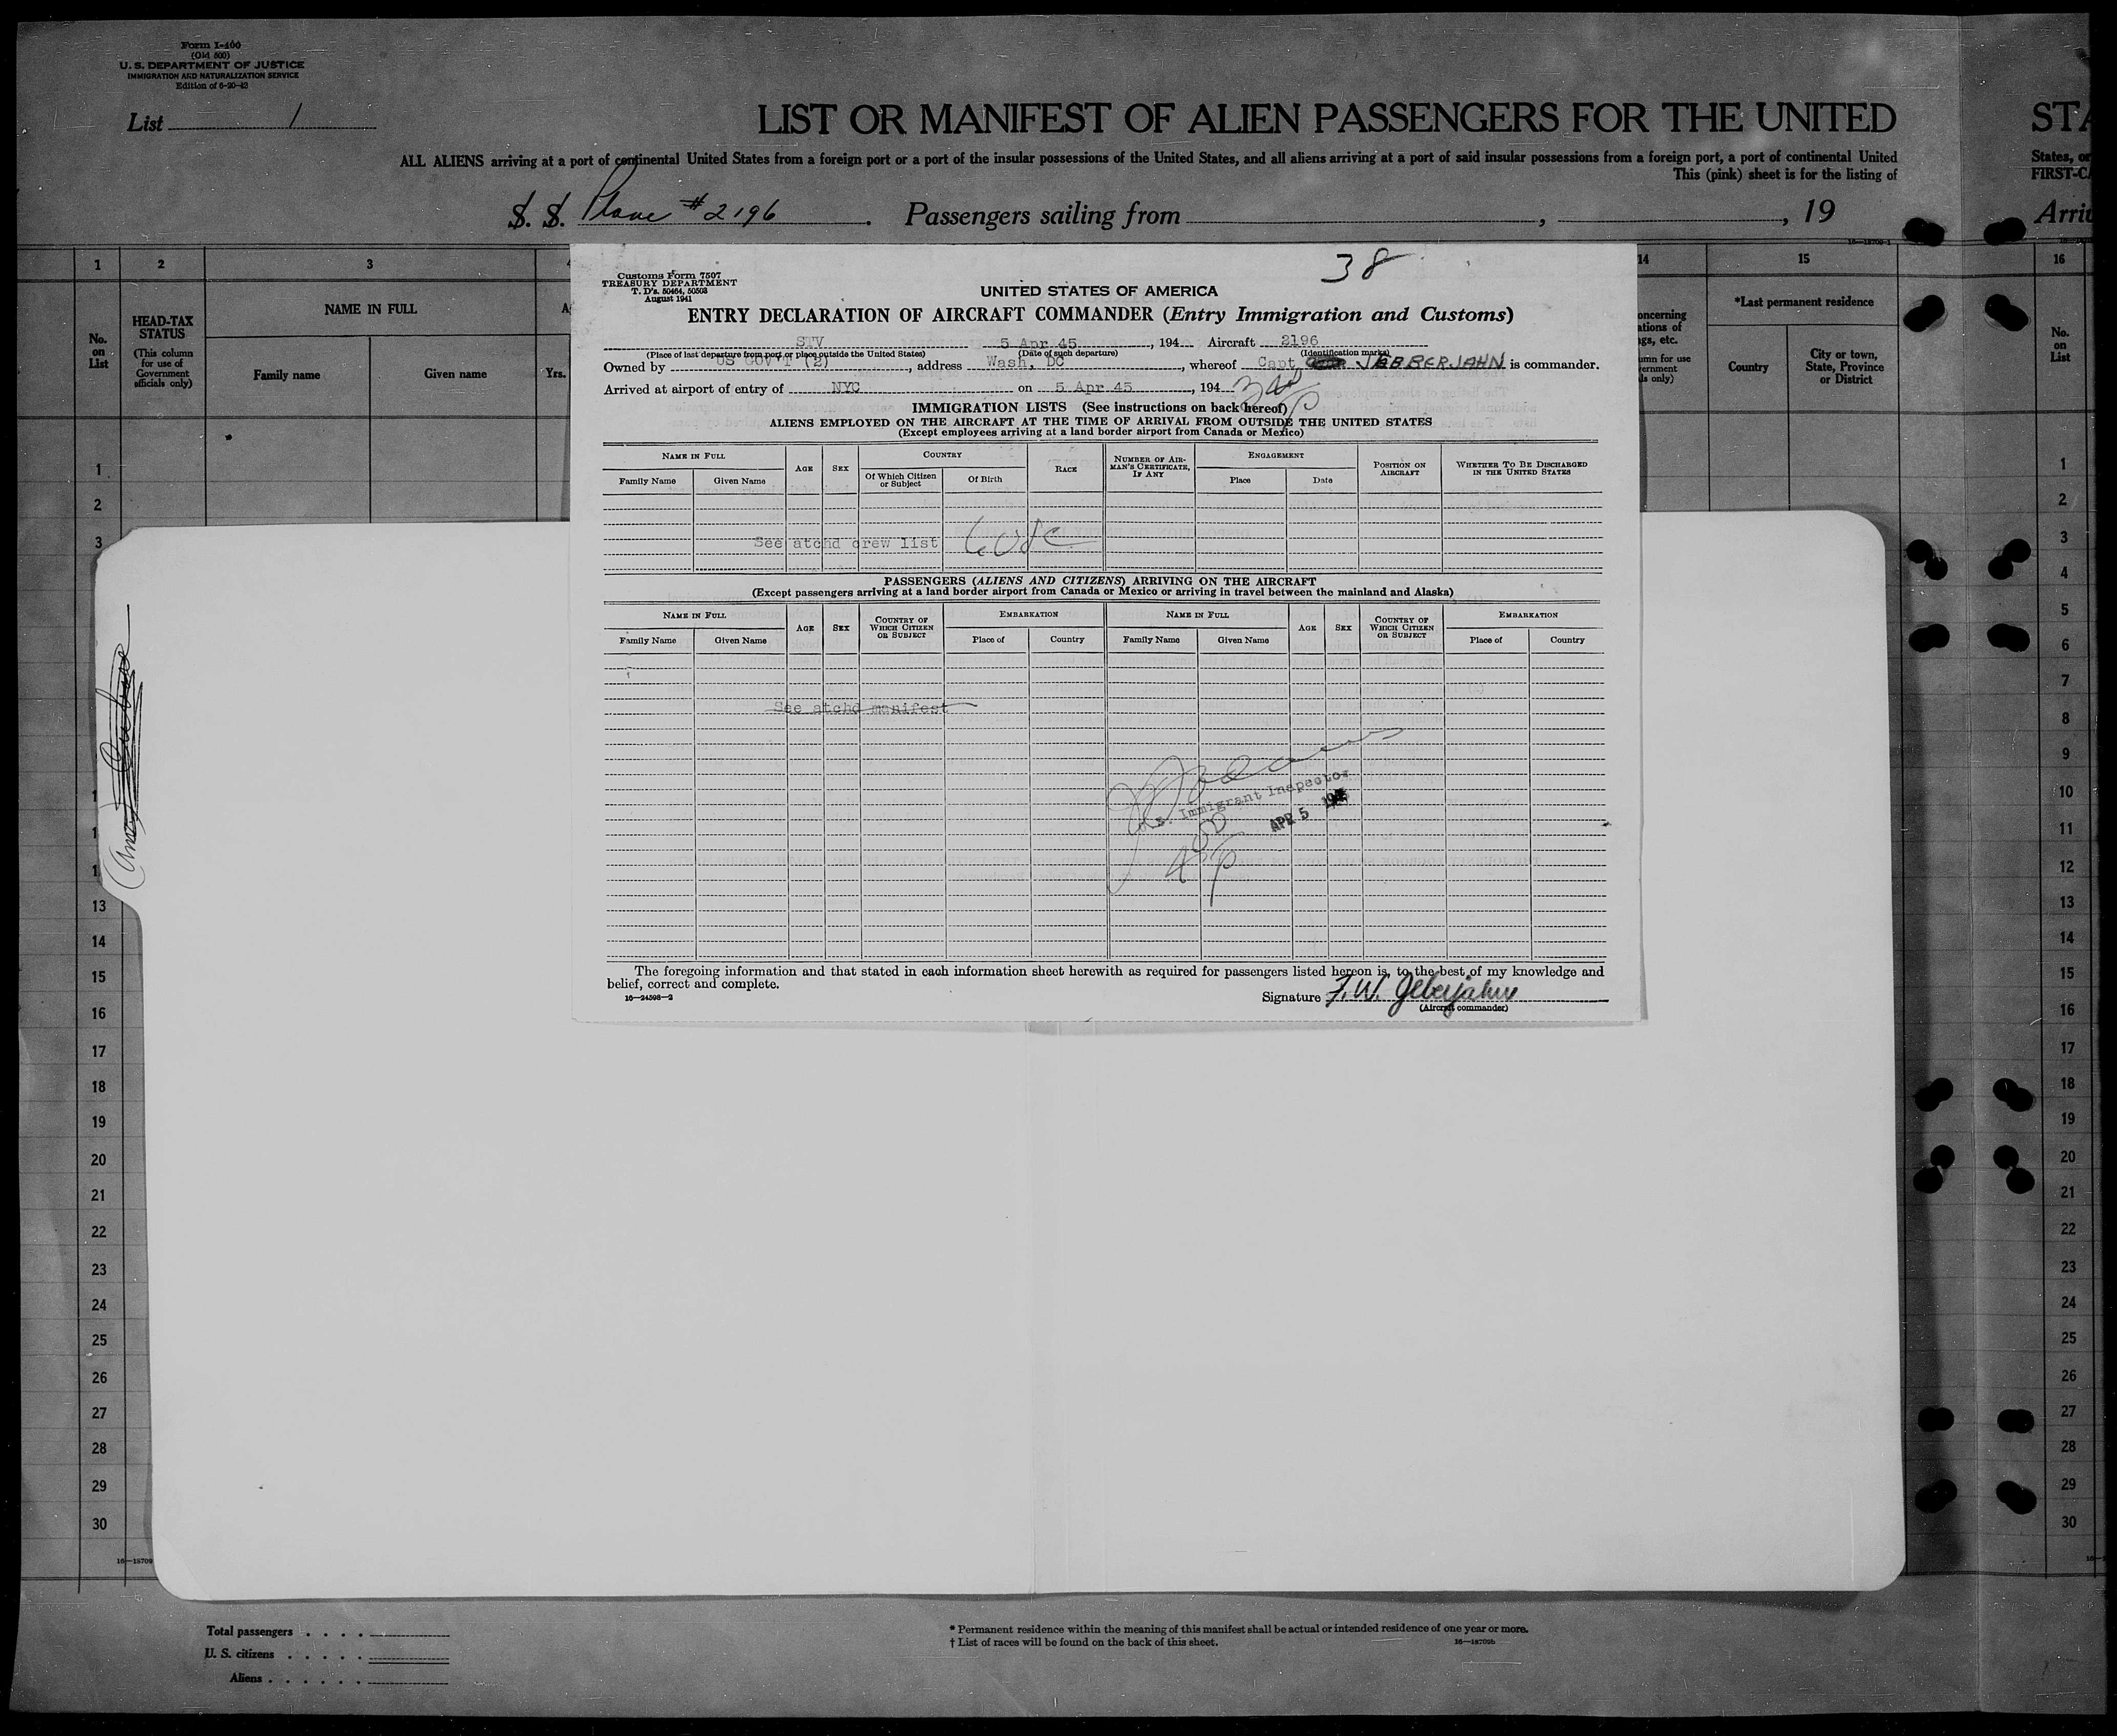 Form I-400
(Old 500)
U. S. DEPARTMENT OF JUSTICE
IMMIGRATION AND NATURALIZATION SERVICE
Edition of 6-20-43
List 1
LIST OR MANIFEST OF ALIEN PASSENGERS FOR THE UNITED
STA
ALL ALIENS arriving at a port of continental United States from a foreign port or a port of the insular possessions of the United States, and all aliens arriving at a port of said insular possessions from a foreign port, a port of continental United
States, or
This (pink) sheet is for the listing of
FIRST-CA
S. S. Plane #2196 . Passengers sailing from , , 19
Arriv
16—18709-1
1 2 3 14 15 16
No. on List
HEAD-TAX STATUS
(This column for use of Government officials only)
NAME IN FULL
Family name Given name
Yrs.
*Last permanent residence
Country
City or town, State, Province or District
No. on List
Customs Form 7507
TREASURY DEPARTMENT
T. D's. 50464, 50503
August 1941
38
UNITED STATES OF AMERICA
ENTRY DECLARATION OF AIRCRAFT COMMANDER (Entry Immigration and Customs)
STV 5 Apr 45 , 194 Aircraft 2196
(Place of last departure from port or place outside the United States) (Date of such departure) (Identification marks)
Owned by US GOV'T (2) , address Wash, DC , whereof Capt JEBBERJAHN is commander.
Arrived at airport of entry of NYC on 5 Apr 45 , 194
IMMIGRATION LISTS (See instructions on back hereof)
ALIENS EMPLOYED ON THE AIRCRAFT AT THE TIME OF ARRIVAL FROM OUTSIDE THE UNITED STATES
(Except employees arriving at a land border airport from Canada or Mexico)
NAME IN FULL AGE SEX COUNTRY RACE NUMBER OF AIRMAN'S CERTIFICATE, IF ANY ENGAGEMENT POSITION ON AIRCRAFT WHETHER TO BE DISCHARGED IN THE UNITED STATES
Family Name Given Name Of Which Citizen or Subject Of Birth Place Date
See atchd crew list 6 USC
PASSENGERS (ALIENS AND CITIZENS) ARRIVING ON THE AIRCRAFT
(Except passengers arriving at a land border airport from Canada or Mexico or arriving in travel between the mainland and Alaska)
NAME IN FULL AGE SEX COUNTRY OF WHICH CITIZEN OR SUBJECT EMBARKATION NAME IN FULL AGE SEX COUNTRY OF WHICH CITIZEN OR SUBJECT EMBARKATION
Family Name Given Name Place of Country Family Name Given Name Place of Country
See atchd manifest
Immigrant Inspector
APR 5
The foregoing information and that stated in each information sheet herewith as required for passengers listed hereon is, to the best of my knowledge and
belief, correct and complete.
16—24598-2
Signature F. W. Jeberjahn
(Aircraft commander)
1 1
2 2
3 3
4
5
6
7
8
9
10
11
12
13 13
14 14
15 15
16 16
17 17
18 18
19 19
20 20
21 21
22 22
23 23
24 24
25 25
26 26
27 27
28 28
29 29
30 30
16—18709
Total passengers . . . .
U. S. citizens . . . . .
Aliens . . . . . .
* Permanent residence within the meaning of this manifest shall be actual or intended residence of one year or more.
† List of races will be found on the back of this sheet.
16—18709b